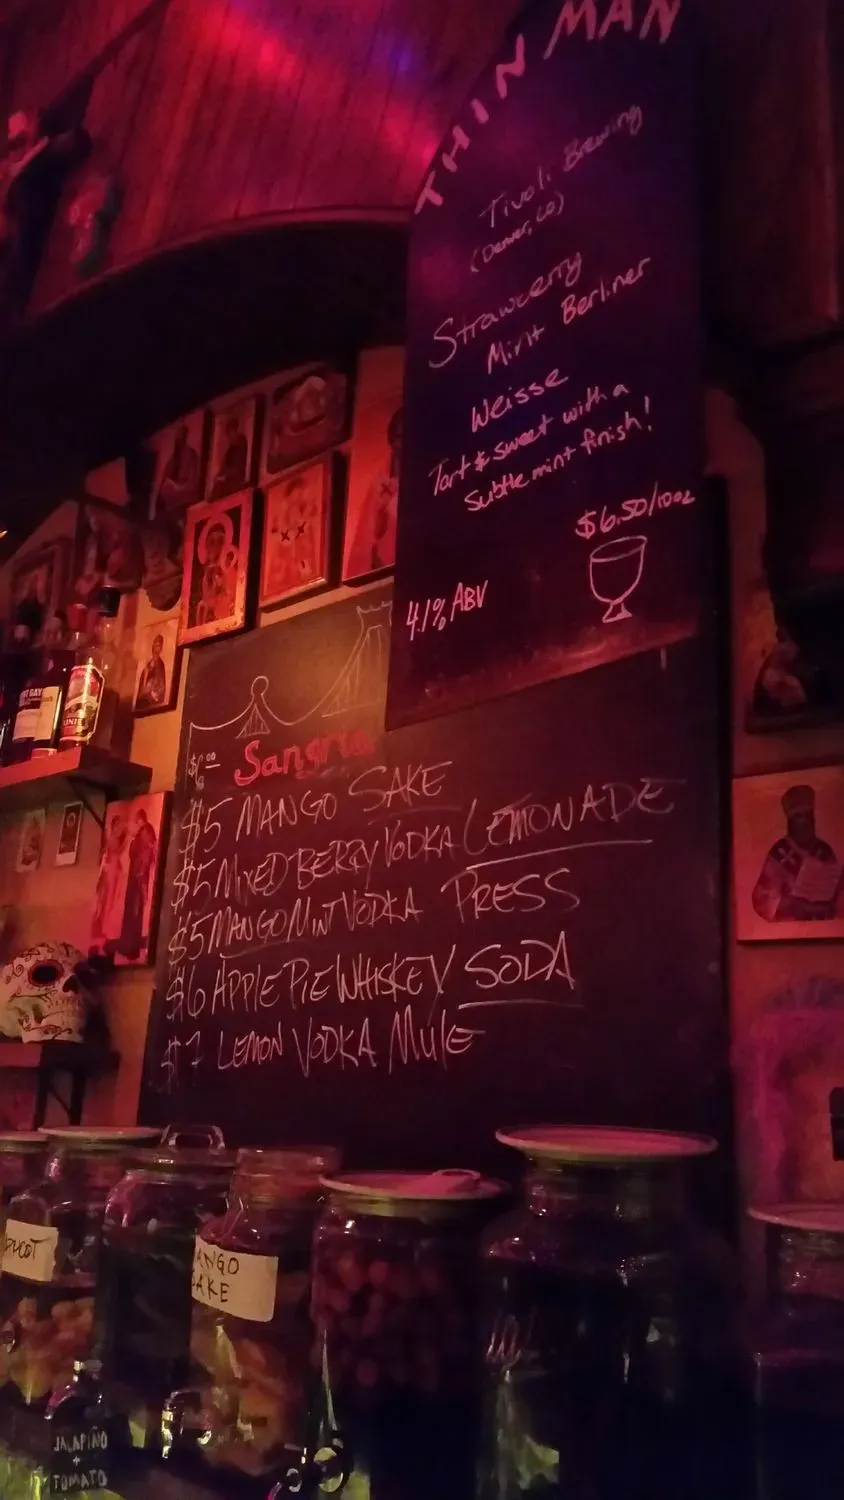 THIN MAN
Tivoli Brewing
(Denver, CO)
Strawberry
Mint Berliner
Weisse
Tart & sweet with a
subtle mint finish!
$6.50/10oz
4.1% ABV
$6.00 Sangria
$5 MANGO SAKE
$5 MIXED BERRY VODKA LEMONADE
$5 MANGO MINT VODKA PRESS
$6 APPLE PIE WHISKEY SODA
$7 LEMON VODKA Mule
ANGO
AKE
JALAPIÑO
+
TOMATO